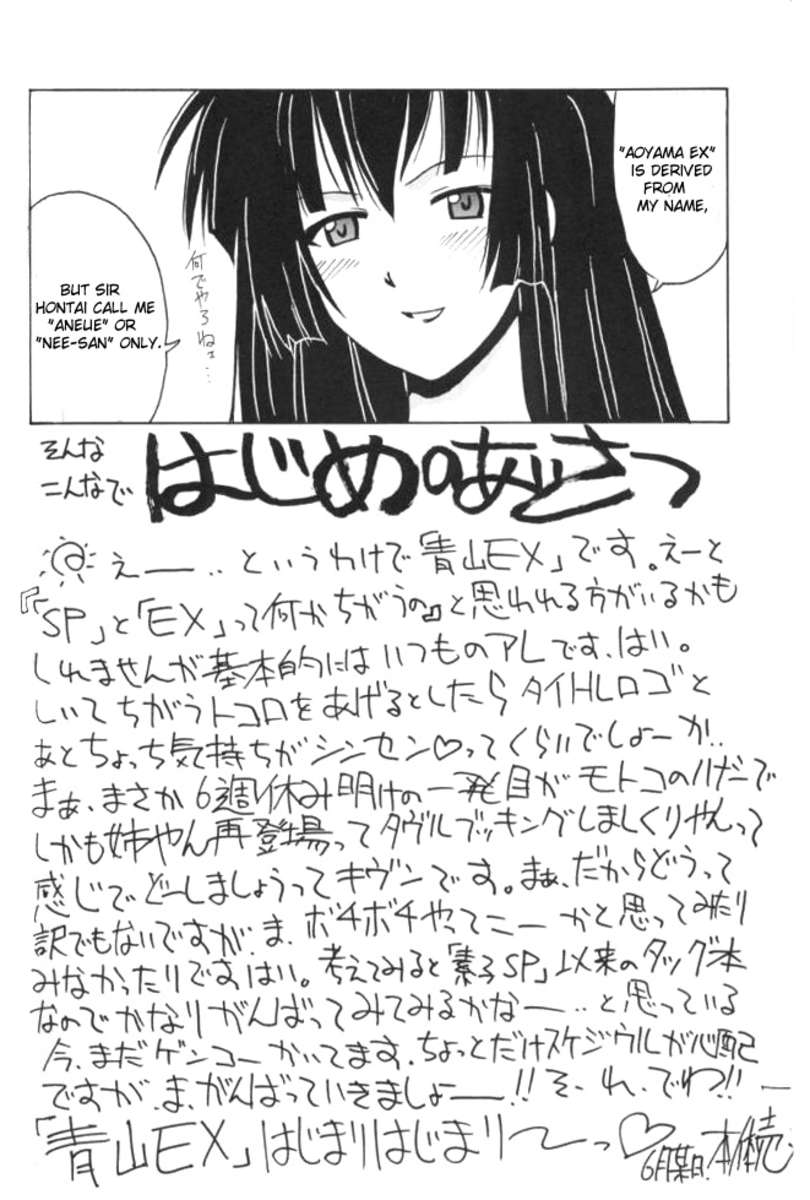 "AOYAMA EX"
IS DERIVED
FROM
MY NAME,
BUT SIR
HONTAI CALL ME
"ANEUE" OR
"NEE-SAN" ONLY.
何でやろねェ…
そんな
こんなで
はじめのあいさつ
えー‥というわけで「青山EX」です。えーと
『「SP」と「EX」って何かちがうの』と思われる方がいるかも
しれませんが基本的にはいつものアレです、はい。
しいてちがうトコロをあげるとしたらタイトルロゴと
あとちょっち気持ちがシンセン♡ってくらいでしょーか‥
まぁ、まさか6週休み明けの一発目がモトコのハナシで
しかも姉やん再登場ってダヴルブッキングしましくりやんって
感じでどーしましょうってキヴンです。まぁ、だからどうって
訳でもないですが、ま、ボチボチやってこーかと思ってみたり
みなかったりですはい。考えてみると「素子SP」以来のタッグ本
なのでかなりがんばってみてみるかなー‥と思っている
今、まだゲンコーかいてます、ちょっとだけスケジウルが心配
ですが、ま、がんばっていきましょー!!そ、れ、でわ!!
「青山EX」はじまりはじまり〜っ♡
6月某日、本体売